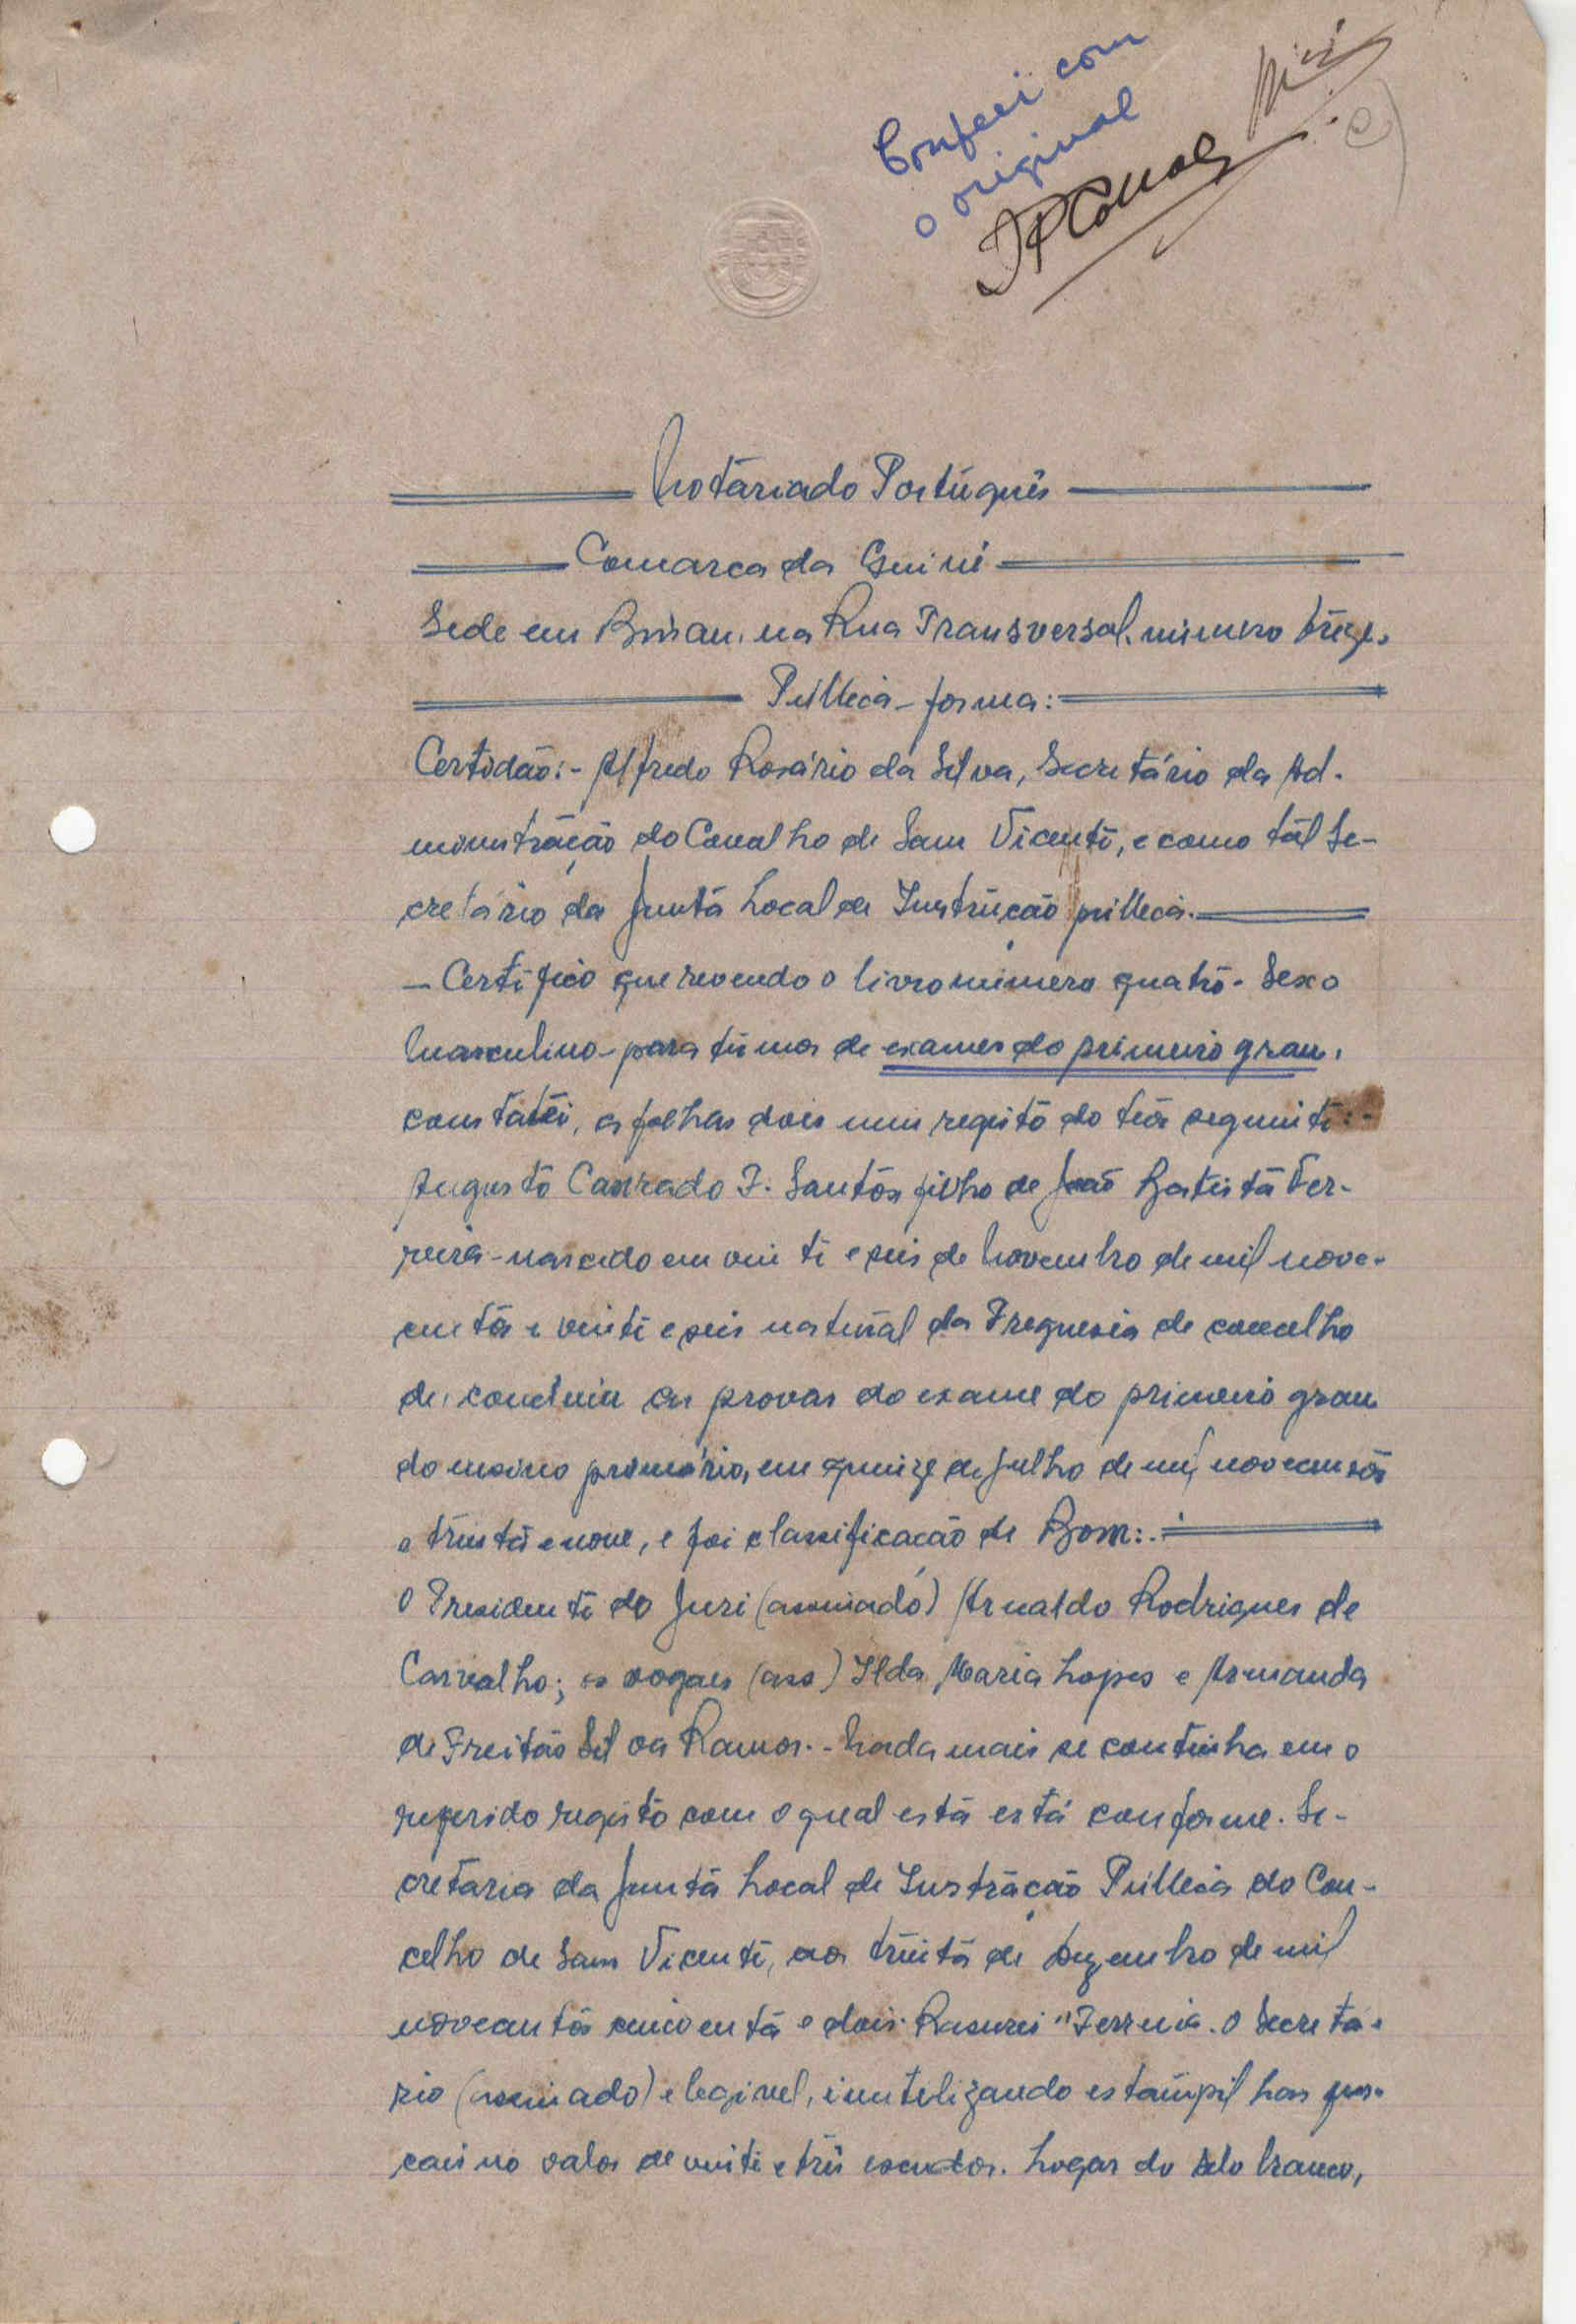 Conferi com
o original
Notariado Português
Comarca da Guiné
Sede em Bissau, na Rua Transversal, número treze.
Pública-forma:
Certidão:- Alfredo Rosário da Silva, Secretário da Ad-
ministração do Concelho de Sam Vicente, e como tál Se-
cretário da Junta Local de Instrução pública.
- Certifico que revendo o livro número quatro - Sexo
Masculino - para termos de exames do primeiro grau,
constatei, a folhas dois um registo do teôr seguinte:-
Augusto Conrado F. Santos filho de João Batista Fer-
reira - nascido em vinte e seis de Novembro de mil nove-
centos e vinte e seis natural da Freguesia de concelho
de, concluiu as provas do exame do primeiro grau
do ensino primário, em quinze de Julho de mil novecentos
e trinta e nove, e foi classificação de Bom:.
O Presidente do Juri (assinado) Arnaldo Rodrigues de
Carvalho; os vogaes (ass) Ilda Maria Lopes e Armanda
de Freitas Silva Ramos.- Nada mais se continha em o
referido registo com o qual esta está conforme. Se-
cretaria da Junta Local de Instrução Pública do Con-
celho de Sam Vicente, aos trinta de Dezembro de mil
novecentos cincoenta e dois. Rasurei "Ferreia. O Secretá-
rio (assinado) elegivel, inutilizando estampilhas fis-
cais no valor de vinte e três escudos. Logar do selo branco,